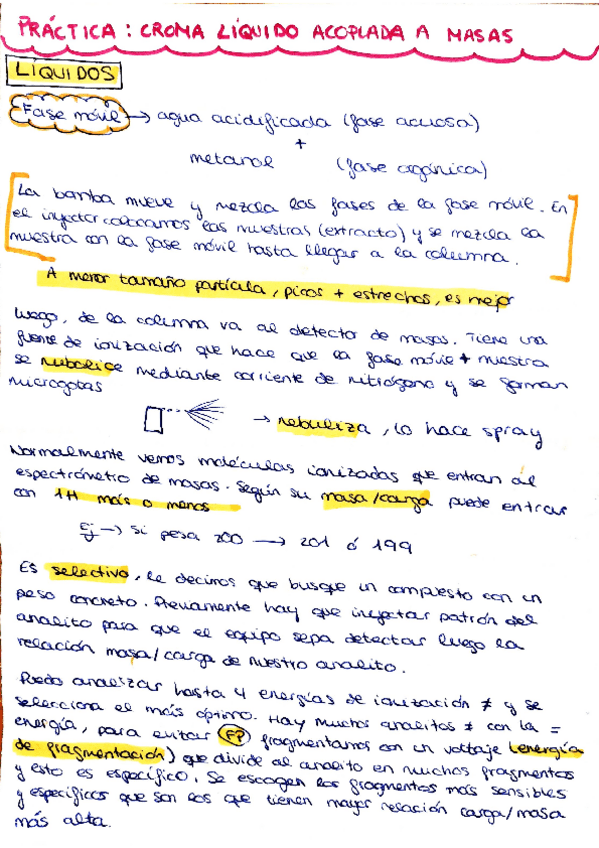 PRÁCTICA: CROMA LÍQUIDO ACOPLADA A MASAS
LÍQUIDOS
Fase móvil → agua acidificada (fase acuosa)
+
metanol (fase orgánica)
La bomba mueve y mezcla las fases de la fase móvil. En
el inyector colocamos las muestras (extracto) y se mezcla la
muestra con la fase móvil hasta llegar a la columna.
A menor tamaño partícula, picos + estrechos, es mejor
Luego, de la columna va al detector de masas. Tiene una
fuente de ionización que hace que la fase móvil + muestra
se nubolice mediante corriente de nitrógeno y se forman
microgotas
→ nebuliza, lo hace spray
Normalmente vemos moléculas ionizadas que entran al
espectrómetro de masas. Según su masa/carga puede entrar
con 1H más o menos
Ej → si pesa 200 → 201 ó 199
Es selectivo, le decimos que busque un compuesto con un
peso concreto. Previamente hay que inyectar patrón del
analito para que el equipo sepa detectar luego la
relación masa/carga de nuestro analito.
Puedo analizar hasta 4 energías de ionización ≠ y se
selecciona el más óptimo. Hay muchos analitos ≠ con la =
energía, para evitar FP fragmentamos con un voltaje (energía
de fragmentación) que divide al analito en muchos fragmentos
y esto es específico. Se escogen los fragmentos más sensibles
y específicos que son los que tienen mayor relación carga/masa
más alta.